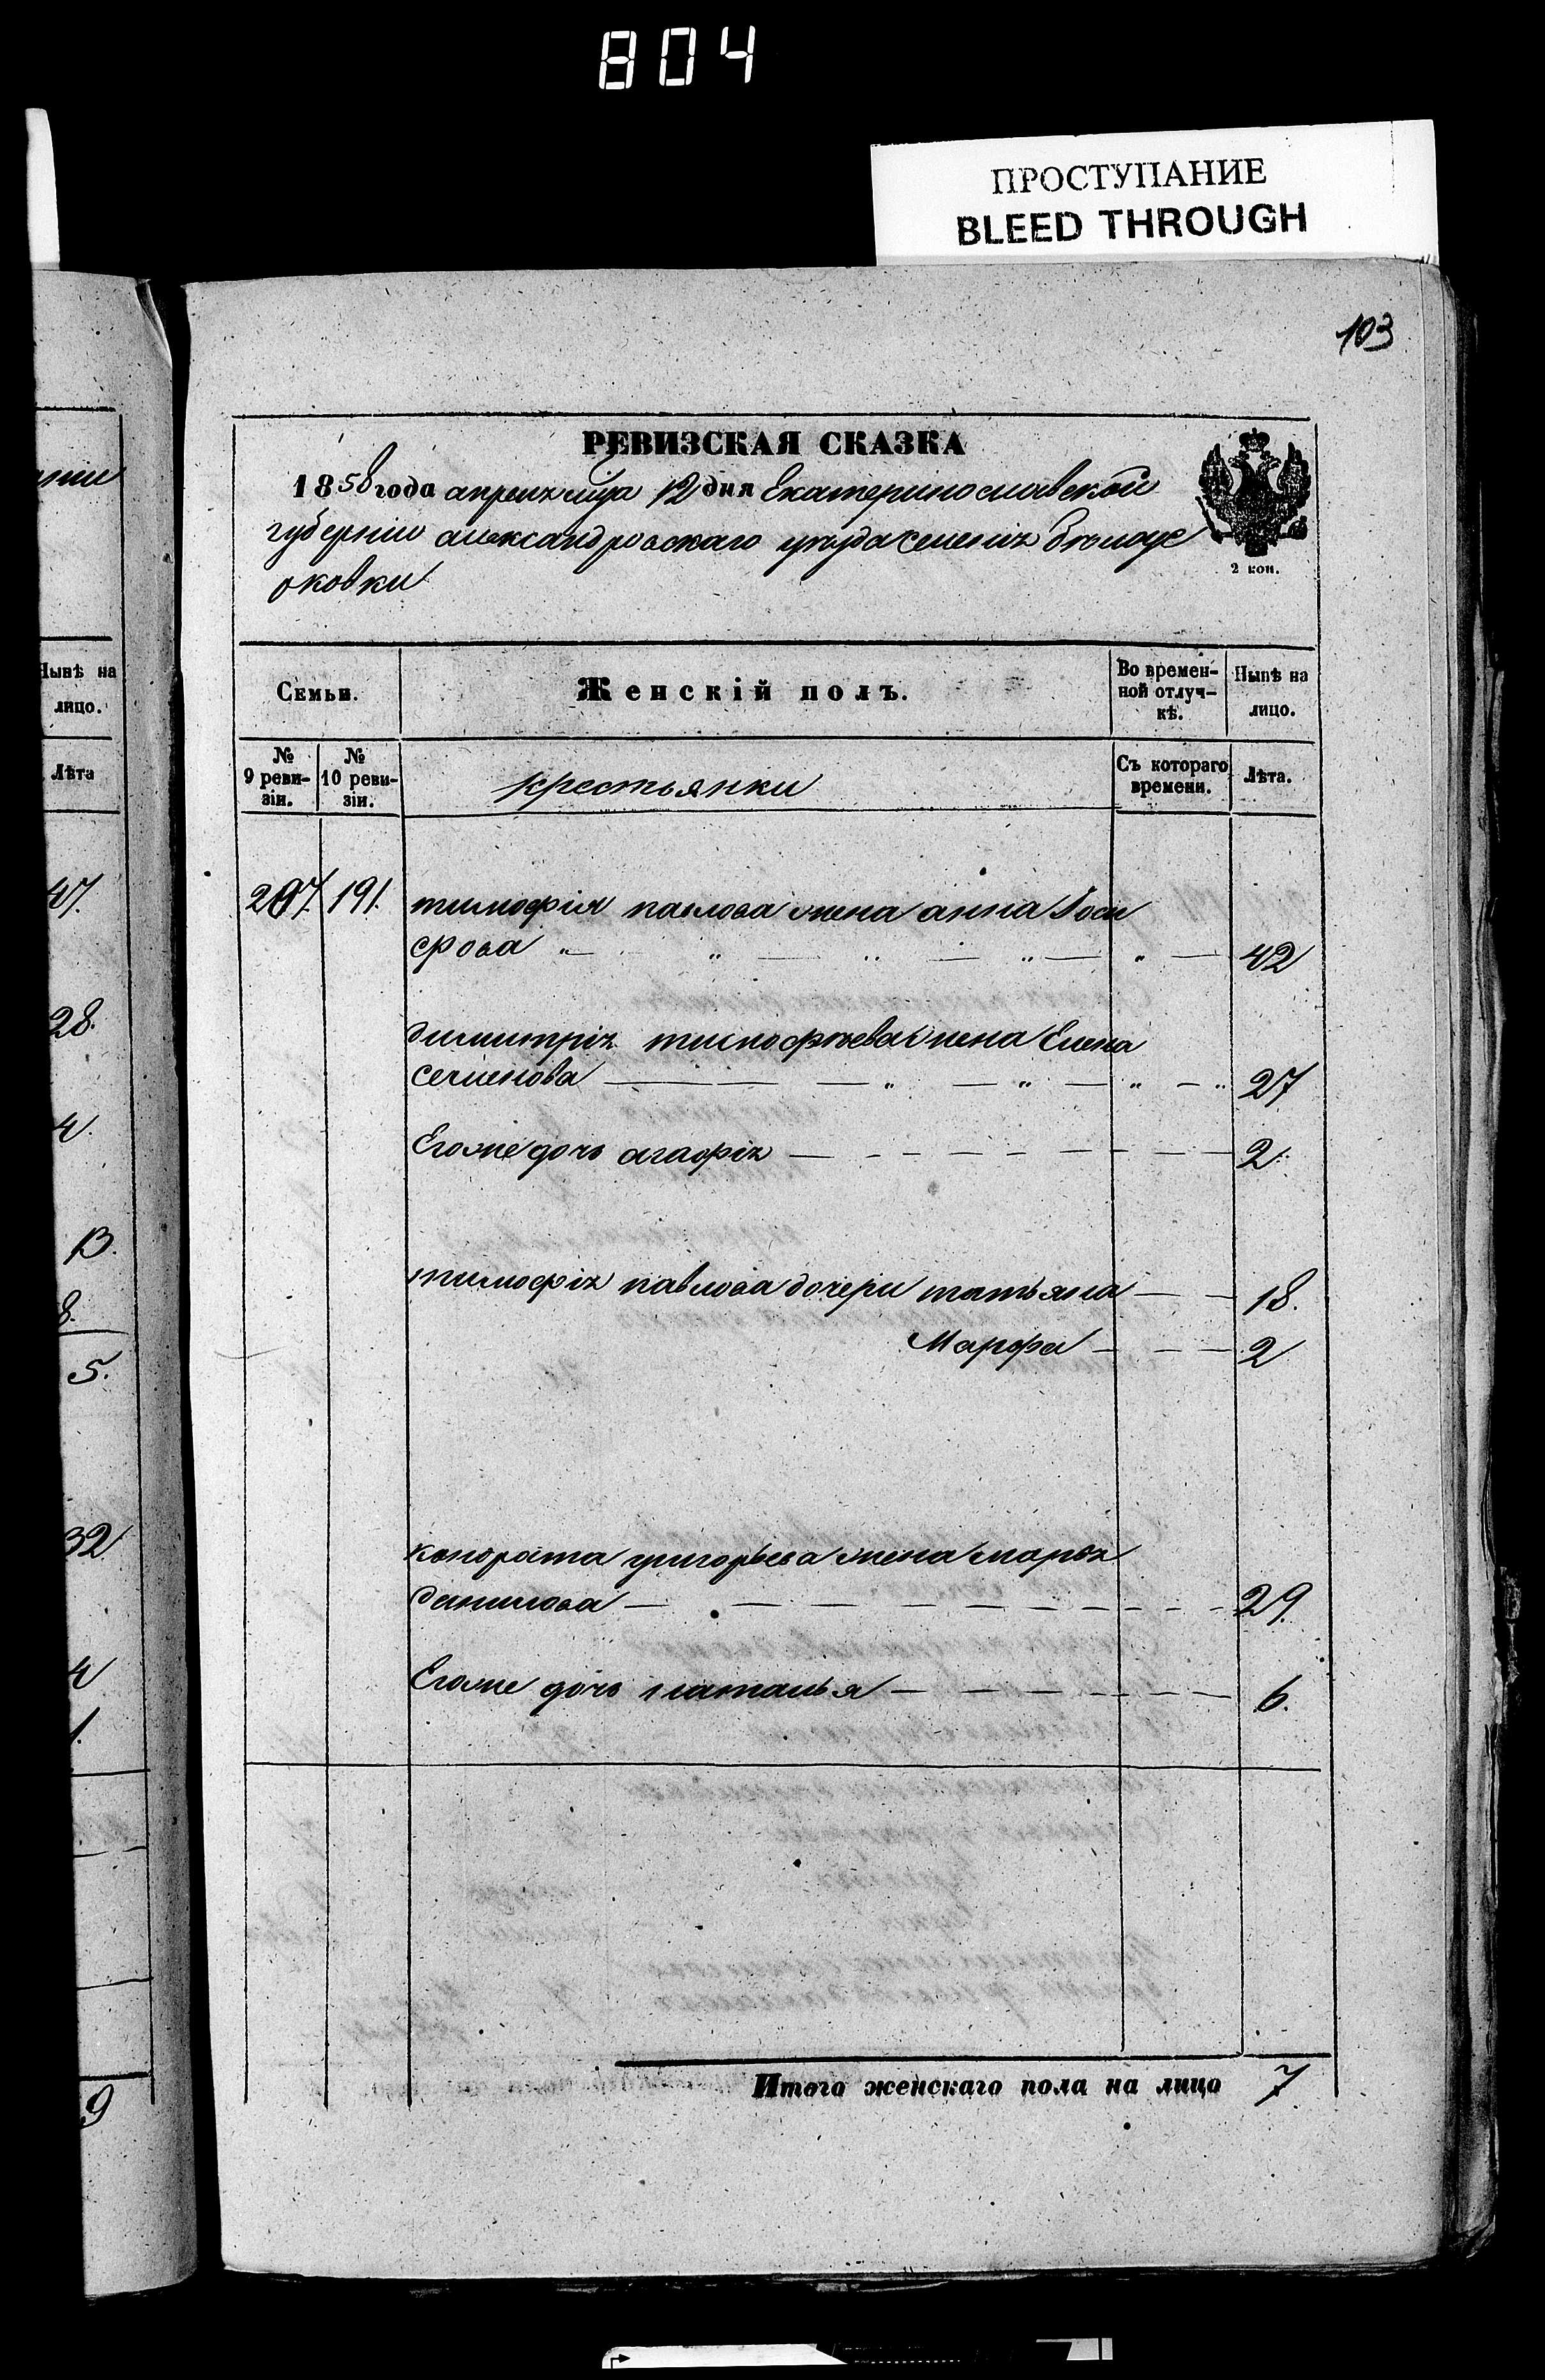 804
ПРОСТУПАНИЕ
BLEED THROUGH
103
РЕВИЗСКАЯ СКАЗКА
1858 года апреля мца 12 дня Екатеринославской
губернии александровскаго уезда селения Белоус
овки
2 коп.
Семьи.
Женскій полъ.
Во времен-
ной отлуч-
кѣ.
Нынѣ на
лицо.
№ 9 реви-
зіи.
№ 10 реви-
зіи.
крестьянки
Съ котораго
времени.
Лѣта.
207. 191. тимофія павлова жена анна Iоси
фова 42
димитрія тимофѣева жена Елена
семенова 27
Егоже дочь агафія 2.
тимофія павлова дочери татьяна 18.
Марфа 2
кондрата григорьева жена марья
данилова 29.
Егоже дочь наталья 6.
Итого женскаго пола на лицо 7
Нынѣ на
лицо.
Лѣта
47.
28.
4.
13.
8.
5.
32
4
1.
9